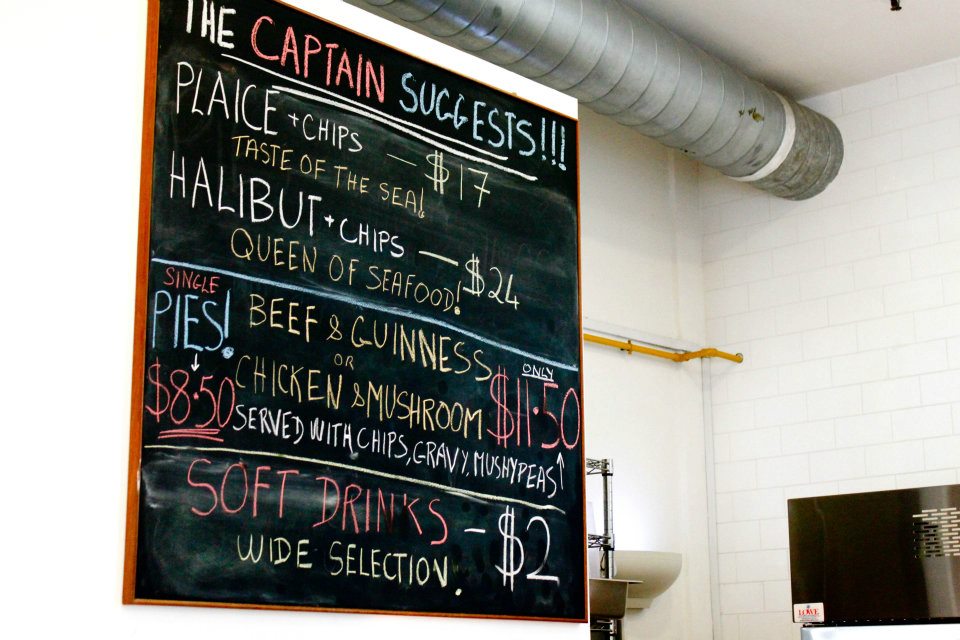 THE CAPTAIN SUGGESTS!!!
PLAICE + CHIPS — $17
TASTE OF THE SEA!
HALIBUT + CHIPS — $24
QUEEN OF SEAFOOD!
SINGLE
PIES! BEEF & GUINNESS
OR
CHICKEN & MUSHROOM
$8.50
ONLY
$11.50
SERVED WITH CHIPS, GRAVY, MUSHY PEAS
SOFT DRINKS – $2
WIDE SELECTION.
LOWE